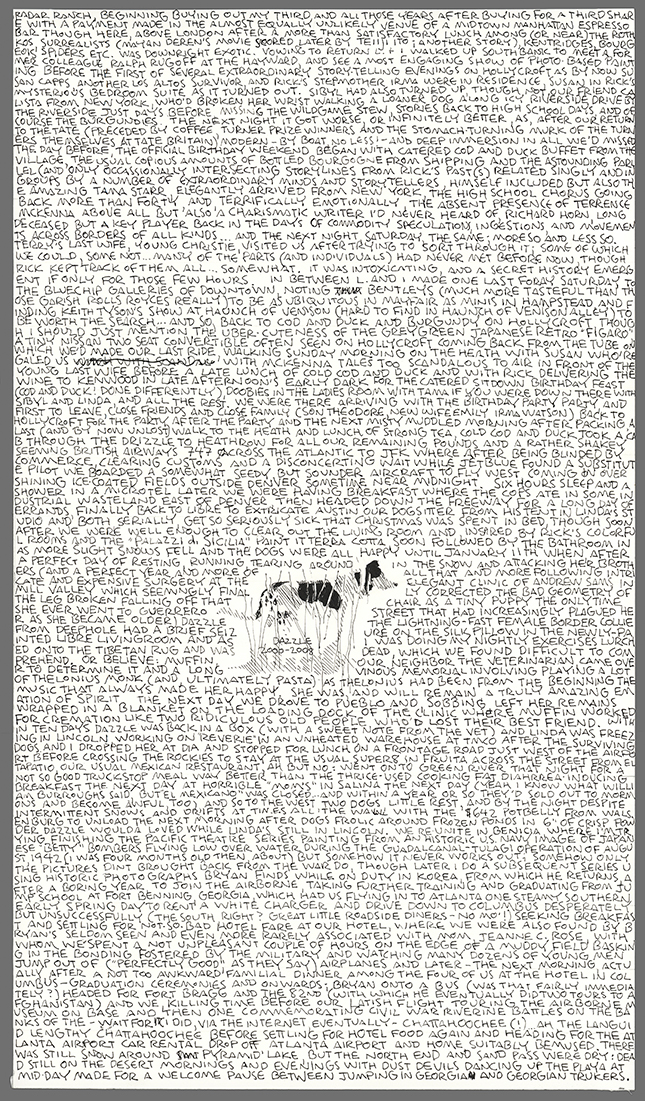 RADAR RANCH, BEGINNING BUYING OUT MY THIRD, AND ALL THOSE YEARS AFTER BUYING FOR A THIRD SHAR
E WITH A PAYMENT MADE IN THE ALMOST EQUALLY UNLIKELY VENUE OF A MIDTOWN MANHATTAN ESPRESSO
BAR. THOUGH HERE, ABOVE LONDON AFTER A MORE THAN SATISFACTORY LUNCH AMONG (OR NEAR) THE ROTH
KOS SURREALISTS (MAYAN DEREN'S MOVIE SCORED LATER BY TEIJI ITO; ANOTHER STORY), KENTRIDGES, BOURG
EOIS SPIDERS ETC. WAS DOWNRIGHT EXOTIC. VOWING TO RETURN L. AND I WALKED UP SOUTHBANK TO MEET A FOR
MER COLLEAGUE RALPH RUGOFF AT THE HAYWARD, AND SEE A MOST ENGAGING SHOW OF PHOTO-BASED PAINT
ING BEFORE THE FIRST OF SEVERAL EXTRAORDINARY STORY-TELLING EVENINGS ON HOLLYCROFT AS BY NOW SU
SAN CAPPS ANOTHER LOS ALTOS SURVIVOR AND RICK'S STEPMOTHER IRMA WERE IN RESIDENCE, SUSAN IN RICK'S
MYSTERIOUS BEDROOM SUITE AS IT TURNED OUT. SIBYL HAD ALSO TURNED UP, THOUGH NOT OUR FRIEND CA
LISTA FROM NEW YORK, WHO'D BROKEN HER WRIST WALKING A LOANER DOG ALONG ICY RIVERSIDE DRIVE BY
THE RIVERSIDE JUST DAYS BEFORE MISSING THE WILD GAME STEW, STORIES BACK TO HIGH SCHOOL DAYS, AND OF
COURSE THE BURGUNDIES. THE NEXT NIGHT IT GOT WORSE, OR INFINITELY BETTER, AS, AFTER OUR RETURN
TO THE TATE (PRECEDED BY COFFEE TURNER PRIZE WINNERS AND THE STOMACH-TURNING MURK OF THE TURN
ERS THEMSELVES AT TATE BRITAIN) MODERN - BY BOAT NO LESS! - AND DEEP IMMERSION IN ALL WE'D MISSED
THE DAY BEFORE THE OFFICIAL BIRTHDAY WEEKEND BEGAN WITH CATERED COD AND DUCK BUFFET FROM THE
VILLAGE, THE USUAL COPIOUS AMOUNTS OF BOTTLED BOURGOGNE FROM SHIPPING AND THE ASTOUNDING PARAL
LEL (AND ONLY OCCASIONALLY) INTERSECTING STORYLINES FROM RICK'S PAST(S) RELATED SINGLY AND IN
GROUPS BY A NUMBER OF EXTRAORDINARY MINDS AND STORYTELLERS, HIMSELF INCLUDED BUT ALSO TH
E AMAZING TAMA STARR, ELEGANTLY ARRIVED FROM NEW YORK, THE HIGH SCHOOL CHORUS GOING
BACK MORE THAN FORTY AND TERRIFICALLY EMOTIONALLY, THE ABSENT PRESENCE OF TERRENCE
MCKENNA ABOVE ALL BUT ALSO A CHARISMATIC WRITER I'D NEVER HEARD OF RICHARD HORN, LONG
DECEASED BUT A KEY PLAYER BACK IN THE DAYS OF COMMODITY SPECULATION, INGESTIONS AND MOVEMEN
TS ACROSS BORDERS OF ALL KINDS... AND THE NEXT NIGHT, SATURDAY, THE SAME; MORE SO AND LESS SO,
TERRY'S LAST WIFE, YOUNG CHRISTIE, VISITED US AFTER TRYING TO SORT THROUGH IT; SOME OF WHICH
WE COULD, SOME NOT... MANY OF THE PARTS (AND INDIVIDUALS) HAD NEVER MET BEFORE NOW, THOUGH
RICK KEPT TRACK OF THEM ALL... SOMEWHAT. IT WAS INTOXICATING, AND A SECRET HISTORY EMERG
ENT IF ONLY FOR THOSE FEW HOURS. IN BETWEEN L. AND I MADE ONE LAST FORAY SATURDAY TO
THE BLUE CHIP GALLERIES OF DOWNTOWN, NOTING BENTLEYS (MUCH MORE TASTEFUL THAN TH
OSE GARISH ROLLS ROYCES REALLY) TO BE AS UBIQUITOUS IN MAYFAIR AS MINIS IN HAMPSTEAD AND F
INDING KEITH TYSON'S SHOW AT HAUNCH OF VENISON (HARD TO FIND IN HAUNCH OF VENISON ALLEY) TO
BE WORTH THE SEARCH... AND SO, BACK TO COD AND DUCK AND BURGUNDY ON HOLLYCROFT THOUG
H I SHOULD JUST MENTION THE UBER-CUTENESS OF THE GREY GREEN JAPANESE RETRO "FIGARO"
A TINY NISSAN TWO SEAT CONVERTIBLE OFTEN SEEN ON HOLLYCROFT COMING BACK FROM THE TUBE ON
WHICH WE'D MADE OUR LAST RIDE. WALKING SUNDAY MORNING ON THE HEATH WITH SUSAN WHO RE
GALED US WITH MCKENNA TALES TOO SCANDALOUS TO AIR IN FRONT OF THE
YOUNG LAST WIFE BEFORE A LATE LUNCH OF COLD COD AND DUCK AND WITH RICK DELIVERING THE
WINE TO KENWOOD IN LATE AFTERNOON'S EARLY DARK FOR THE CATERED SITDOWN BIRTHDAY FEAST
(COD AND DUCK! DONE DIFFERENTLY) DOOBIES IN THE LADIES ROOM WITH TAMA IF YOU WERE DOWN THERE WITH
SIBYL AND LINDA AND ALL THE REST, WE WERE THERE ARRIVING WITH THE BIRTHDAY PARTY PARTY AND
FIRST TO LEAVE, CLOSE FRIENDS AND CLOSE FAMILY (SON THEODORE, NEW WIFE EMILY IRMA WATSON) BACK TO
HOLLYCROFT FOR THE PARTY AFTER THE PARTY AND THE NEXT MISTY MUDDLED MORNING AFTER PACKING A
LAST (AND BY NOW UNLOST) WALK TO THE HEATH AND LUNCH OF STRONG TEA, COLD COD AND DUCK, TOOK A CA
B THROUGH THE DRIZZLE TO HEATHROW FOR ALL OUR REMAINING POUNDS, AND A RATHER SHAKEN
SEEMING BRITISH AIRWAYS 747 ACROSS THE ATLANTIC TO JFK WHERE AFTER BEING BLINDED BY
COMMERCE, CLEARING CUSTOMS AND A DISCONCERTING WAIT WHILE JETBLUE FOUND A SUBSTITUT
E PILOT WE BOARDED A SOMEWHAT SEEDY BUT SOUNDER AIRCRAFT TO FLY WEST COMING IN OVER
SHINING ICE-COATED FIELDS OUTSIDE DENVER SOMETIME NEAR MIDNIGHT. SIX HOURS SLEEP AND A
SHOWER IN A MICROTEL LATER WE WERE HAVING BREAKFAST WHERE THE COPS ATE IN SOME IN
DUSTRIAL WASTELAND EAST OF DENVER THEN HEADED DOWN THE FREEWAY FOR A LONG DAY OF
ERRANDS FINALLY BACK TO LIBRE TO EXTRICATE AUSTIN OUR DOGSITTER FROM HIS TENT IN LINDA'S ST
UDIO AND BOTH SERIALLY, GET SO SERIOUSLY SICK THAT CHRISTMAS WAS SPENT IN BED, THOUGH SOON
AFTER WE WERE WELL ENOUGH TO CLEAR OUT THE LIVING ROOM AND INSPIRED BY RICK'S COLORFU
L ROOMS AND THE 'PALAZZI IN SICILIA' PAINT IT TERRA COTTA SOON FOLLOWED BY THE BATHROOM IN
AS MORE SLIGHT SNOWS FELL AND THE DOGS WERE ALL HAPPY UNTIL JANUARY 11TH WHEN, AFTER
A PERFECT DAY OF RESTING, RUNNING TEARING AROUND IN THE SNOW AND ATTACKING HER BROTH
ERS (AND A PERFECT YEAR AND MORE OF ALL THAT AND MORE FOLLOWING INTRI
CATE AND EXPENSIVE SURGERY AT THE ELEGANT CLINIC OF ANDREW SAMS IN
MILL VALLEY WHICH SEEMINGLY FINAL LY CORRECTED THE BAD GEOMETRY OF
THE LEG BROKEN FALLING OFF THAT CHAIR AS A TINY PUPPY THE ONLY TIME
SHE EVER WENT TO GUERRERO STREET THAT HAD INCREASINGLY PLAGUED HE
R AS SHE BECAME OLDER) DAZZLE THE LIGHTNING-FAST FEMALE BORDER COLLIE
FROM DEEPHOLE HAD A BRIEF SEIZ URE ON THE SILK PILLOW IN THE NEWLY-PA
INTED LIBRE LIVINGROOM AND AS I WAS DOING MY NIGHTLY EXERCISES LURCH
ED ONTO THE TIBETAN RUG AND WAS DEAD, WHICH WE FOUND DIFFICULT TO COM
PREHEND, OR BELIEVE. MUFFIN OUR NEIGHBOR THE VETERINARIAN CAME OVE
R TO DETERMINE IT AND A LONG VINOUS MEMORIAL INVOLVING PLAYING A LOT
OF THELONIUS MONK (AND, ULTIMATELY PASTA) AS THELONIUS HAD BEEN FROM THE BEGINNING THE
DAZZLE
2000-2008
MUSIC THAT ALWAYS MADE HER HAPPY. SHE WAS AND WILL REMAIN A TRULY AMAZING EM
ATION OF SPIRIT. THE NEXT DAY WE DROVE TO PUEBLO AND, SOBBING, LEFT HER REMAINS
WRAPPED IN A BLANKET ON THE LOADING DOCK OF THE CLINIC WHERE MUFFIN WORKED
FOR CREMATION LIKE TWO RIDICULOUS OLD PEOPLE WHO'D LOST THEIR BEST FRIEND. WITH
IN TEN DAYS DAZZLE WAS BACK IN A BOX (WITH A SWEET NOTE FROM THE VET) AND LINDA WAS FREEZ
ING IN LINCOLN WORKING ON REVERIE IN AN UNHEATED WAREHOUSE AT TWO AFTER THE SURVIVING
DOGS AND I DROPPED HER AT DIA AND STOPPED FOR LUNCH ON A FRONTAGE ROAD JUST WEST OF THE AIRPO
RT BEFORE CROSSING THE ROCKIES TO STAY AT THE USUAL SUPER 8 IN FRUITA ACROSS THE STREET FROM EL
TAPATIO OUR USUAL MEXICAN RESTAURANT, AH BUT NO; WENT ON TO GREEN RIVER THAT NIGHT FOR A
NOT SO GOOD TRUCKSTOP MEAL WAY BETTER THAN THE THRICE-USED COOKING FAT DIAHRREA INDUCING
BREAKFAST THE NEXT DAY AT HORRIBLE "MOM'S" IN SALINA THE NEXT DAY (YEAH I KNOW WHAT WILLI
AM BURROUGHS SAID, BUT EL MEXICANO WAS CLOSED... AND WITHIN A YEAR OR SO THEY'D SOLD OUT TO MORM
ONS AND BECOME AWFUL, TOO) AND SO TO THE WEST TWO DOGS LITTLE REST, AND BY THE NIGHT DESPITE
INTERMITTENT SNOWS, AND DRIFTS AT TIMES ALL THE WAY WITH THE $642 POTBELLY FROM WALS
ENBURG TO UNLOAD THE NEXT MORNING AFTER DOGS FROLIC AROUND FROZEN PONDS IN 6" OF CRISP POW
DER DAZZLE WOULDA LOVED WHILE LINDA'S STILL IN LINCOLN. WE REUNITE IN BENICIA WHERE I'M TR
YING FINISHING THE PACIFIC THEATRE SERIES PAINTING FROM AN HISTORIC U.S. NAVY IMAGE OF JAPAN
ESE "BETTY" BOMBERS FLYING LOW OVER WATER DURING THE GUADALCANAL-TULAGI OPERATION OF AUGU
ST 1942 (I WAS FOUR MONTHS OLD THEREABOUT) BUT SOMEHOW IT NEVER WORKS OUT, SOMEHOW ONLY
THE PICTURES DINT BROUGHT BACK FROM THE WAR DO, THOUGH LATER I DO A SUBSEQUENT SERIES U
SING HISTORIC PHOTOGRAPHS BRYAN FINDS WHILE ON DUTY IN KOREA, FROM WHICH HE RETURNS A
FTER A BORING YEAR TO JOIN THE AIRBORNE, TAKING FURTHER TRAINING AND GRADUATING FROM JU
MP SCHOOL AT FORT BENNING GEORGIA WHICH HAD US FLYING IN TO ATLANTA ONE STEAMY SOUTHERN
EARLY SPRING DAY TO RENT A WHITE CHARGER AND DRIVE DOWN TO COLUMBUS DESPERATELY
BUT UNSUCCESSFULLY (THE SOUTH RIGHT? GREAT LITTLE ROADSIDE DINERS - NO MO'!) SEEKING BREAKFAS
T AND SETTLING FOR NOT-SO-BAD HOTEL FARE AT OUR HOTEL, WHERE WE WERE ALSO FOUND BY B
RYAN'S SELDOM SEEN AND EVEN MORE RARELY ASSOCIATED WITH MOM, JEANNE C. ROSE WITH
WHOM WE SPENT A NOT UNPLEASANT COUPLE OF HOURS ON THE EDGE OF A MUDDY FIELD BASKIN
G IN THE BONDING FOSTERED BY THE MILITARY AND WATCHING MANY DOZENS OF YOUNG MEN
JUMP OUT OF ("PERFECTLY GOOD" AS THEY SAY) AIRPLANES AND LATER - THE NEXT MORNING ACTU
ALLY AFTER A NOT TOO AWKWARD FAMILIAL DINNER AMONG THE FOUR OF US AT THE HOTEL IN COL
UMBUS - GRADUATION CEREMONIES AND ONWARDS: BRYAN ONTO A BUS (WAS THAT FAIRLY IMMEDIA
TELY?) HEADED FOR FORT BRAGG AND THE 82ND (WITH WHICH HE EVENTUALLY DID TWO TOURS TO A
FGHANISTAN) AND WE, KILLING TIME BEFORE OUR LATISH FLIGHT TOURING THE AIRBORNE M
USEUM ON BASE AND THEN ONE COMMEMORATING CIVIL WAR RIVERINE BATTLES ON THE BA
NKS OF THE - WAIT FOR IT! DID, VIA THE INTERNET EVENTUALLY - CHATTAHOOCHEE (!) AH THE LANGUI
D LENGTHY CHATTAHOOCHEE BEFORE SETTLING FOR HOTEL FOOD AGAIN AND HEADING FOR THE AT
LANTA AIRPORT CAR RENTAL DROP OFF ATLANTA AIRPORT AND HOME SUITABLY BEMUSED. THERE
WAS STILL SNOW AROUND PYRAMID LAKE BUT THE NORTH END AND SAND PASS WERE DRY: DEA
D STILL ON THE DESERT MORNINGS AND EVENINGS WITH DUST DEVILS DANCING UP THE PLAYA AT
MID-DAY MADE FOR A WELCOME PAUSE BETWEEN JUMPING IN GEORGIA AND GEORGIAN TRUKERS.